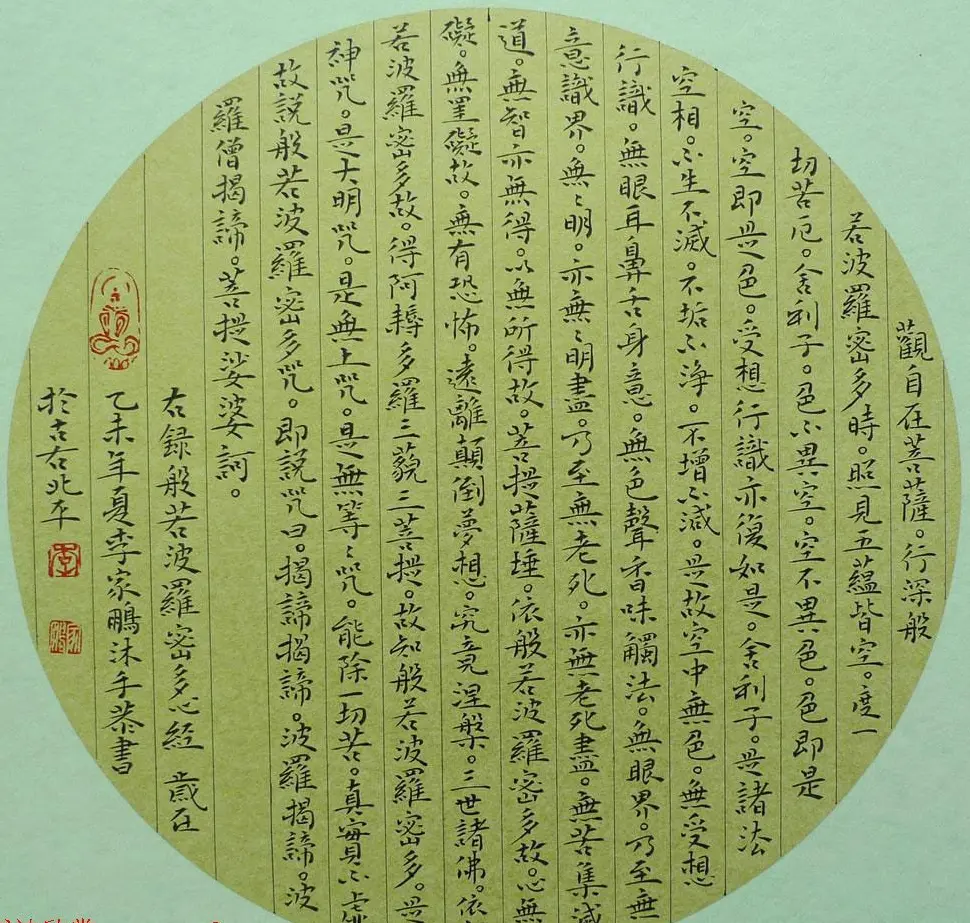 觀自在菩薩。行深般
若波羅密多時。照見五蘊皆空。度一
切苦厄。舍利子。色不異空。空不異色。色即是
空。空即是色。受想行識亦復如是。舍利子。是諸法
空相。不生不滅。不垢不淨。不增不減。是故空中無色。無受想
行識。無眼耳鼻舌身意。無色聲香味觸法。無眼界。乃至無
意識界。無〻明。亦無〻明盡。乃至無老死。亦無老死盡。無苦集滅
道。無智亦無得。以無所得故。菩提薩埵。依般若波羅密多故。心無
礙。無罣礙故。無有恐怖。遠離顛倒夢想。究竟涅槃。三世諸佛。依
若波羅密多故。得阿耨多羅三藐三菩提。故知般若波羅密多。是
神咒。是大明咒。是無上咒。是無等〻咒。能除一切苦。真實不虛
故說般若波羅密多咒。即說咒曰。揭諦揭諦。波羅揭諦。波
羅僧揭諦。菩提娑婆訶。
右録般若波羅密多心經 歲在
乙未年夏李家鵬沐手恭書
於古右北平
李